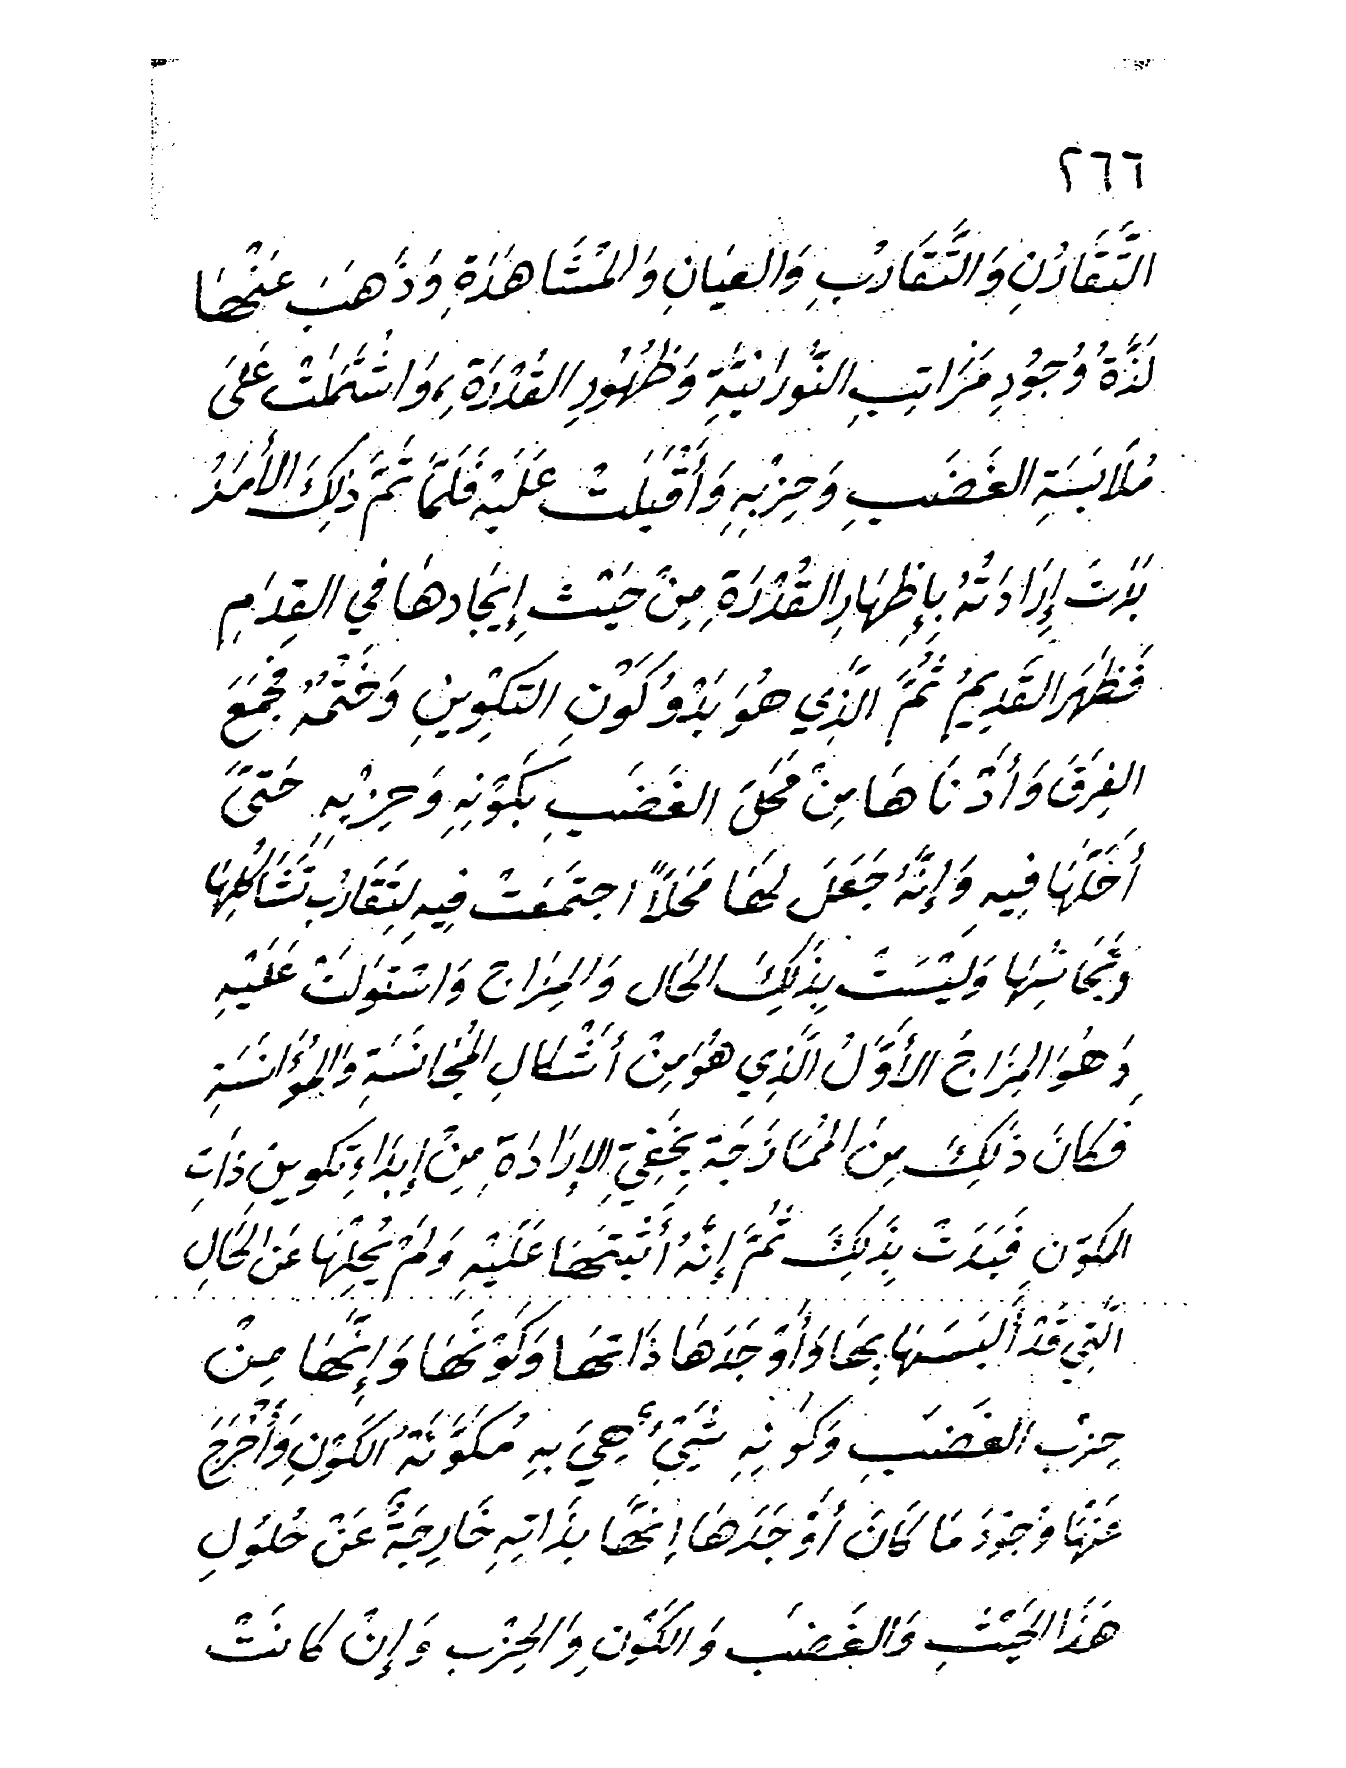 ٢٦٦
التَّقَارُنِ وَالتَّقَارُبِ وَالعِيَانِ وَالمُشَاهَدَةِ وَذَهَبَ عَنْهَا
لَذَّةُ وُجُودِ مَرَاتِبِ النُّورَانِيَّةِ وَظُهُورِ القُدْرَةِ، وَاشْتَمَلَتْ عَلَى
مُلَابَسَةِ الغَضَبِ وَحِزْبِهِ وَأَقْبَلَتْ عَلَيْهِ فَلَمَّا تَمَّ ذَلِكَ الأَمْرُ
بَدَتَ إِرَادَتُهُ بِإِظْهَارِ القُدْرَةِ مِنْ حَيْثُ إِيجَادِهَا فِي القِدَامِ
فَظَهَرَ القَدِيمُ ثُمَّ الَّذِي هُوَ بَدْوُ كَوْنِ التَكْوِينِ وَخَتْمُهُ مُجْمَعَ
الفِرَقَ وَأَدْنَاهَا مِنْ مَحَلِّ الغَضَبِ بِكَوْنِهِ وَحِزْبِهِ حَتَّى
أَحَلَّهَا فِيهِ وَإِنَّهُ جَعَلَ لَهَا مَحَلَاً اجتَمَعَتْ فِيهِ لِتَقَارُبِ تَشَاكُلِهَا
وَتَجَانُسِهَا وَلَيْسَتْ بِذَلِكَ الحَالِ وَالمِزَاجِ وَاسْتَوَلَتْ عَلَيْهِ
وَهُوَ المِزَاجُ الأَوَّلُ الَّذِي هُوَ مِنْ أَشْكَالِ المُجَانَسَةِ وَالمُؤَانَسَةِ
فَكَانَ ذَلِكَ مِنَ المُمَازَجَةِ بِخَفِيَّةِ الإِرَادَةِ مِنْ إِبْدَاءِ تَكوِينِ ذَاتِ
المكوّنِ فَبَدَتْ بِذَلِكَ ثُمَّ إِنَّهُ أَثْبَتَهَا عَلَيْهِ وَلَمْ يُحِلْهَا عَنْ الحَالِ
الَّتِي قَدْ أَلبَسَهَا بِهَا وَأَوْجَدَهَا ذَاتَهَا وَكَوْنَهَا وَإِنَّهَا مِنْ
حِزْبِ الغَضَبِ وَكَوْنِهِ شَيْءٌ هِيَ بِهِ مُكَوَّنَةُ الكَوْنِ وَأَخْرَجَ
عَنْهَا وُجُودَ مَا كَانَ أَوْجَدَهَا إِنَّهَا بِذَاتِهِ خَارِجَةٌ عَنْ حُلُولِ
هَذَا الحَيْثِ وَالغَضَبِ وَالكَوْنِ وَالحِزْبِ وَإِنْ كَانَتْ